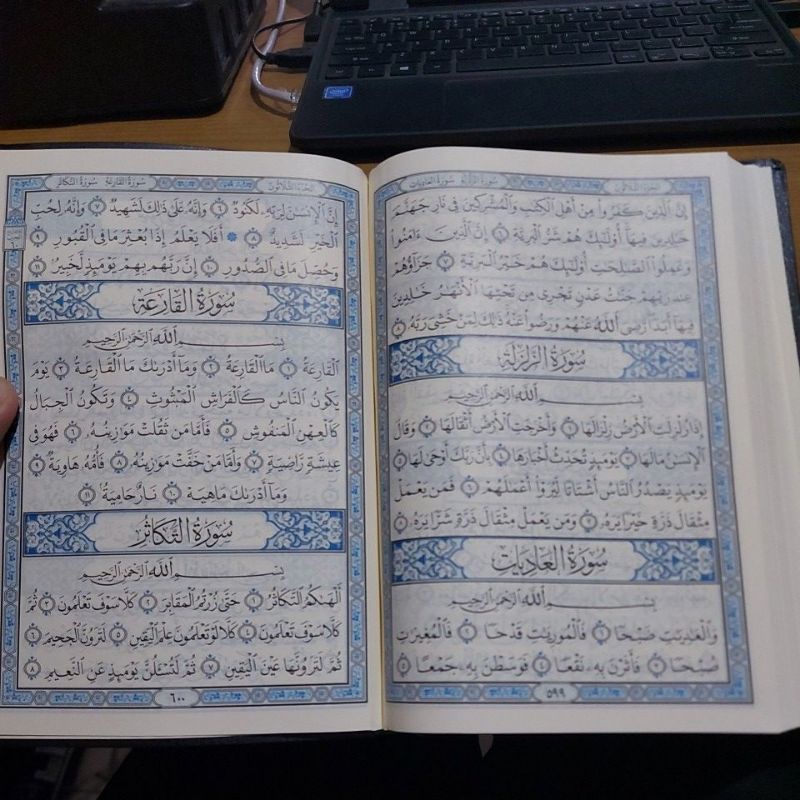 الجزء الثلاثون
سورة العاديات
إِنَّ الَّذِينَ كَفَرُوا مِنْ أَهْلِ الْكِتَٰبِ وَالْمُشْرِكِينَ فِى نَارِ جَهَنَّمَ
خَٰلِدِينَ فِيهَآ أُو۟لَٰٓئِكَ هُمْ شَرُّ الْبَرِيَّةِ ٦ إِنَّ الَّذِينَ ءَامَنُوا
وَعَمِلُوا الصَّٰلِحَٰتِ أُو۟لَٰٓئِكَ هُمْ خَيْرُ الْبَرِيَّةِ ٧ جَزَآؤُهُمْ
عِندَ رَبِّهِمْ جَنَّٰتُ عَدْنٍ تَجْرِى مِن تَحْتِهَا الْأَنْهَٰرُ خَٰلِدِينَ
فِيهَآ أَبَدًا رَّضِىَ اللَّهُ عَنْهُمْ وَرَضُوا عَنْهُ ذَٰلِكَ لِمَنْ خَشِىَ رَبَّهُۥ ٨
سُورَةُ الزَّلْزَلَةِ
بِسْمِ اللَّهِ الرَّحْمَٰنِ الرَّحِيمِ
إِذَا زُلْزِلَتِ الْأَرْضُ زِلْزَالَهَا ١ وَأَخْرَجَتِ الْأَرْضُ أَثْقَالَهَا ٢ وَقَالَ
الْإِنسَٰنُ مَا لَهَا ٣ يَوْمَئِذٍ تُحَدِّثُ أَخْبَارَهَا ٤ بِأَنَّ رَبَّكَ أَوْحَىٰ لَهَا ٥
يَوْمَئِذٍ يَصْدُرُ النَّاسُ أَشْتَاتًا لِّيُرَوْا أَعْمَٰلَهُمْ ٦ فَمَن يَعْمَلْ
مِثْقَالَ ذَرَّةٍ خَيْرًا يَرَهُۥ ٧ وَمَن يَعْمَلْ مِثْقَالَ ذَرَّةٍ شَرًّا يَرَهُۥ ٨
سُورَةُ العَادِيَاتِ
بِسْمِ اللَّهِ الرَّحْمَٰنِ الرَّحِيمِ
وَالْعَٰدِيَٰتِ ضَبْحًا ١ فَالْمُورِيَٰتِ قَدْحًا ٢ فَالْمُغِيرَٰتِ
صُبْحًا ٣ فَأَثَرْنَ بِهِۦ نَقْعًا ٤ فَوَسَطْنَ بِهِۦ جَمْعًا ٥
٥٩٩
الجزء الثلاثون
سورة القارعة سورة التكاثر
إِنَّ الْإِنسَٰنَ لِرَبِّهِۦ لَكَنُودٌ ٦ وَإِنَّهُۥ عَلَىٰ ذَٰلِكَ لَشَهِيدٌ ٧ وَإِنَّهُۥ لِحُبِّ
الْخَيْرِ لَشَدِيدٌ ٨ ۞ أَفَلَا يَعْلَمُ إِذَا بُعْثِرَ مَا فِى الْقُبُورِ ٩
وَحُصِّلَ مَا فِى الصُّدُورِ ١٠ إِنَّ رَبَّهُم بِهِمْ يَوْمَئِذٍ لَّخَبِيرٌ ١١
سُورَةُ القَارِعَةِ
بِسْمِ اللَّهِ الرَّحْمَٰنِ الرَّحِيمِ
الْقَارِعَةُ ١ مَا الْقَارِعَةُ ٢ وَمَآ أَدْرَىٰكَ مَا الْقَارِعَةُ ٣ يَوْمَ
يَكُونُ النَّاسُ كَالْفَرَاشِ الْمَبْثُوثِ ٤ وَتَكُونُ الْجِبَالُ
كَالْعِهْنِ الْمَنفُوشِ ٥ فَأَمَّا مَن ثَقُلَتْ مَوَٰزِينُهُۥ ٦ فَهُوَ فِى
عِيشَةٍ رَّاضِيَةٍ ٧ وَأَمَّا مَنْ خَفَّتْ مَوَٰزِينُهُۥ ٨ فَأُمُّهُۥ هَاوِيَةٌ ٩
وَمَآ أَدْرَىٰكَ مَا هِيَهْ ١٠ نَارٌ حَامِيَةٌ ١١
سُورَةُ التَّكَاثُرِ
بِسْمِ اللَّهِ الرَّحْمَٰنِ الرَّحِيمِ
أَلْهَىٰكُمُ التَّكَاثُرُ ١ حَتَّىٰ زُرْتُمُ الْمَقَابِرَ ٢ كَلَّا سَوْفَ تَعْلَمُونَ ٣ ثُمَّ
كَلَّا سَوْفَ تَعْلَمُونَ ٤ كَلَّا لَوْ تَعْلَمُونَ عِلْمَ الْيَقِينِ ٥ لَتَرَوُنَّ الْجَحِيمَ ٦
ثُمَّ لَتَرَوُنَّهَا عَيْنَ الْيَقِينِ ٧ ثُمَّ لَتُسْـَٔلُنَّ يَوْمَئِذٍ عَنِ النَّعِيمِ ٨
٦٠٠